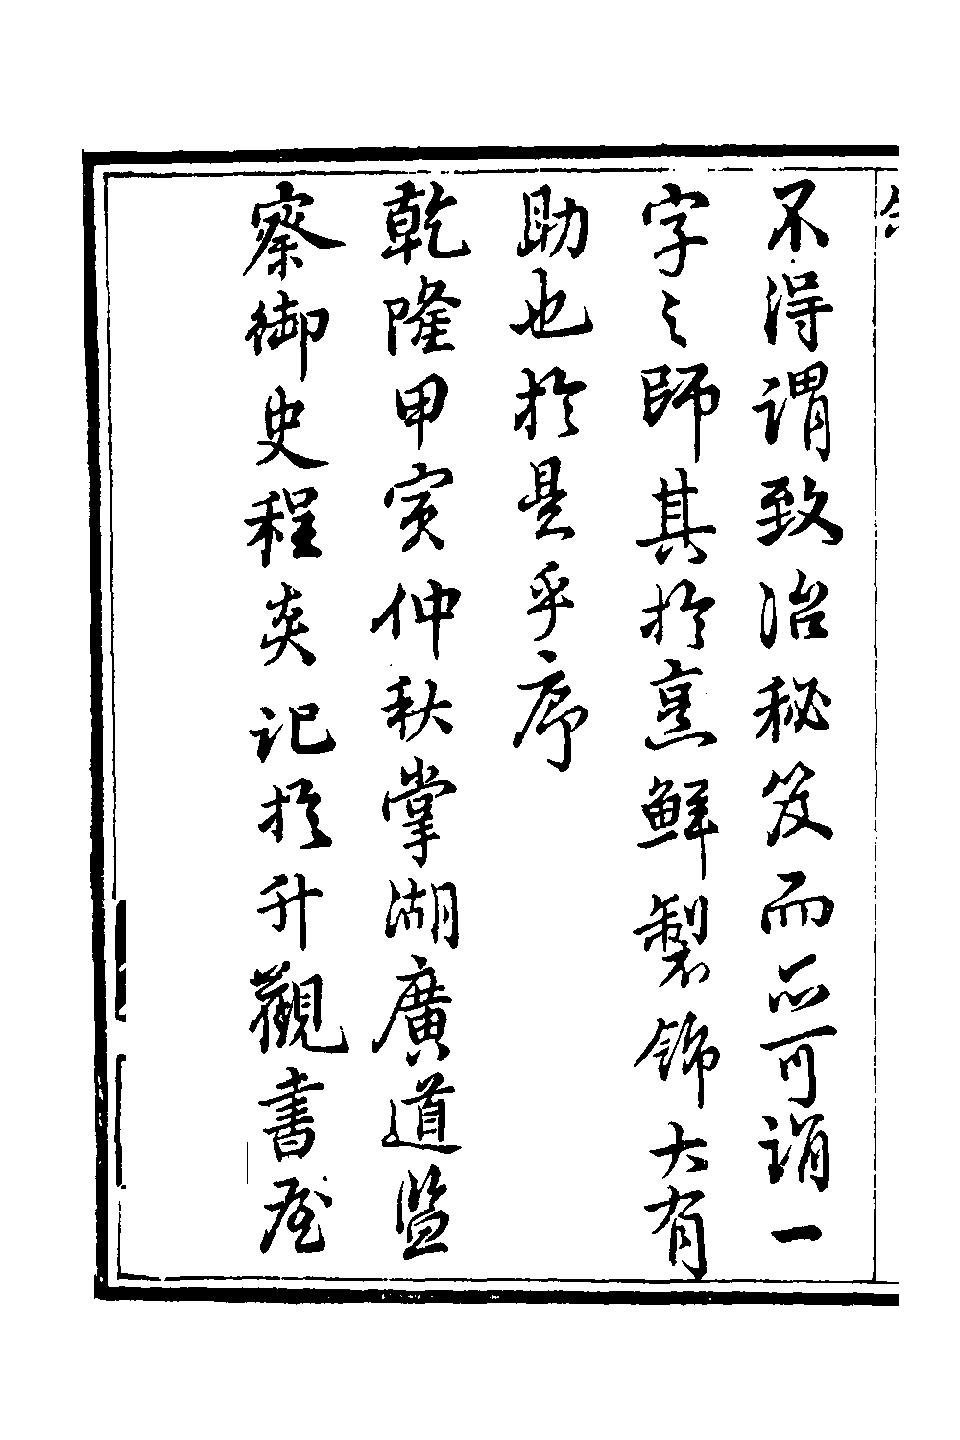 不得謂致治秘笈而亦可謂一
字之師其於烹鮮製錦大有
助也於是乎序
乾隆甲寅仲秋掌湖廣道監
察御史程炎記於升觀書屋